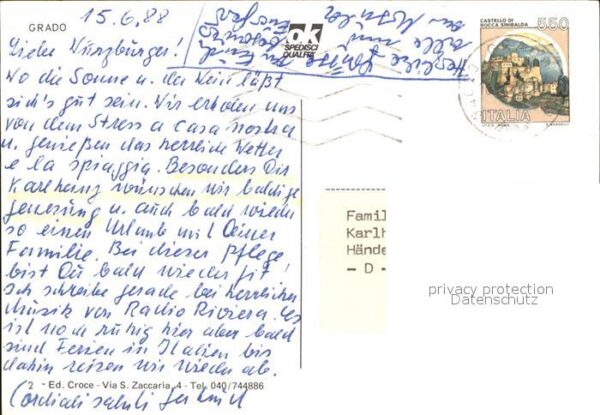 GRADO
15.6.88
Liebe Würzburger!
Wo die Sonne u. der Wein läßt
sich's gut sein. Wir erholen uns
von dem Stress a casa nostra
u. genießen das herrliche Wetter
e la spiaggia. Besonders Dir
Karlhanz wünschen wir baldige
genesung u. auch bald wieder
so einen Urlaub mit Deiner
Familie. Bei dieser Pflege
bist Du bald wieder fit!
Ich schreibe gerade bei herrlicher
Musik von Radio Riviera. Es
ist noch ruhig hier aber bald
sind Ferien in Italien bis
dahin reisen wir wieder ab.
Cordiali saluti
Herzliche Grüße
2 - Ed. Croce - Via S. Zaccaria, 4 - Tel. 040/744886
ok
SPEDISCI
QUALITÀ
CASTELLO DI
ROCCA SINIBALDA
550
ITALIA
Famil
Karlh
Hände
- D -
privacy protection
Datenschutz